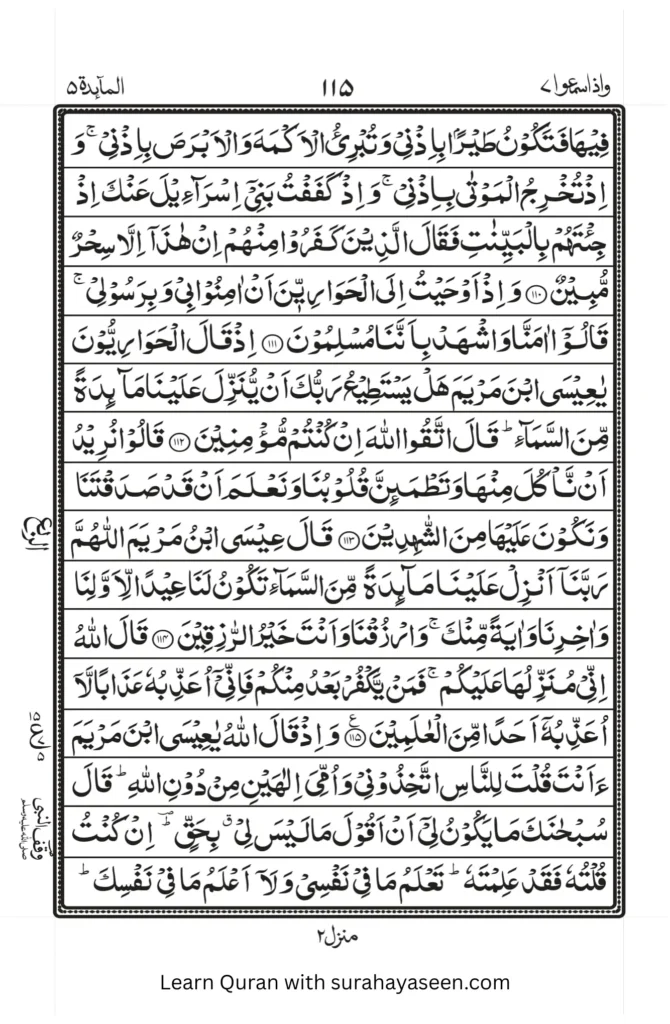 واذاسمعوا٧ ١١٥ المآىِٕدة٥
فِيْهَا فَتَكُوْنُ طَيْرًۢا بِاِذْنِيْ وَتُبْرِئُ الْاَكْمَهَ وَالْاَبْرَصَ بِاِذْنِيْ ۚ وَ
اِذْ تُخْرِجُ الْمَوْتٰى بِاِذْنِيْ ۚ وَاِذْ كَفَفْتُ بَنِيْٓ اِسْرَآءِيْلَ عَنْكَ اِذْ
جِئْتَهُمْ بِالْبَيِّنٰتِ فَقَالَ الَّذِيْنَ كَفَرُوْا مِنْهُمْ اِنْ هٰذَآ اِلَّا سِحْرٌ
مُّبِيْنٌ ١١٠ وَاِذْ اَوْحَيْتُ اِلَى الْحَوَارِيّٖنَ اَنْ اٰمِنُوْا بِيْ وَبِرَسُوْلِيْ ۚ
قَالُوْٓا اٰمَنَّا وَاشْهَدْ بِاَنَّنَا مُسْلِمُوْنَ ١١١ اِذْ قَالَ الْحَوَارِيُّوْنَ
يٰعِيْسَى ابْنَ مَرْيَمَ هَلْ يَسْتَطِيْعُ رَبُّكَ اَنْ يُّنَزِّلَ عَلَيْنَا مَآىِٕدَةً
مِّنَ السَّمَآءِ ؕ قَالَ اتَّقُوا اللّٰهَ اِنْ كُنْتُمْ مُّؤْمِنِيْنَ ١١٢ قَالُوْا نُرِيْدُ
اَنْ نَّاْكُلَ مِنْهَا وَتَطْمَىِٕنَّ قُلُوْبُنَا وَنَعْلَمَ اَنْ قَدْ صَدَقْتَنَا
وَنَكُوْنَ عَلَيْهَا مِنَ الشّٰهِدِيْنَ ١١٣ قَالَ عِيْسَى ابْنُ مَرْيَمَ اللّٰهُمَّ
الربع
رَبَّنَآ اَنْزِلْ عَلَيْنَا مَآىِٕدَةً مِّنَ السَّمَآءِ تَكُوْنُ لَنَا عِيْدًا لِّاَوَّلِنَا
وَاٰخِرِنَا وَاٰيَةً مِّنْكَ ۚ وَارْزُقْنَا وَاَنْتَ خَيْرُ الرّٰزِقِيْنَ ١١٤ قَالَ اللّٰهُ
اِنِّيْ مُنَزِّلُهَا عَلَيْكُمْ ۚ فَمَنْ يَّكْفُرْ بَعْدُ مِنْكُمْ فَاِنِّيْٓ اُعَذِّبُهٗ عَذَابًا لَّآ
اُعَذِّبُهٗٓ اَحَدًا مِّنَ الْعٰلَمِيْنَ ١١٥ وَاِذْ قَالَ اللّٰهُ يٰعِيْسَى ابْنَ مَرْيَمَ
ءَاَنْتَ قُلْتَ لِلنَّاسِ اتَّخِذُوْنِيْ وَاُمِّيَ اِلٰهَيْنِ مِنْ دُوْنِ اللّٰهِ ؕ قَالَ
سُبْحٰنَكَ مَا يَكُوْنُ لِيْٓ اَنْ اَقُوْلَ مَا لَيْسَ لِيْ ۗ بِحَقٍّ ؕ اِنْ كُنْتُ
وقف النبی صلى الله عليه وسلم
قُلْتُهٗ فَقَدْ عَلِمْتَهٗ ؕ تَعْلَمُ مَا فِيْ نَفْسِيْ وَلَآ اَعْلَمُ مَا فِيْ نَفْسِكَ ؕ
منزل٢
Learn Quran with surahayaseen.com